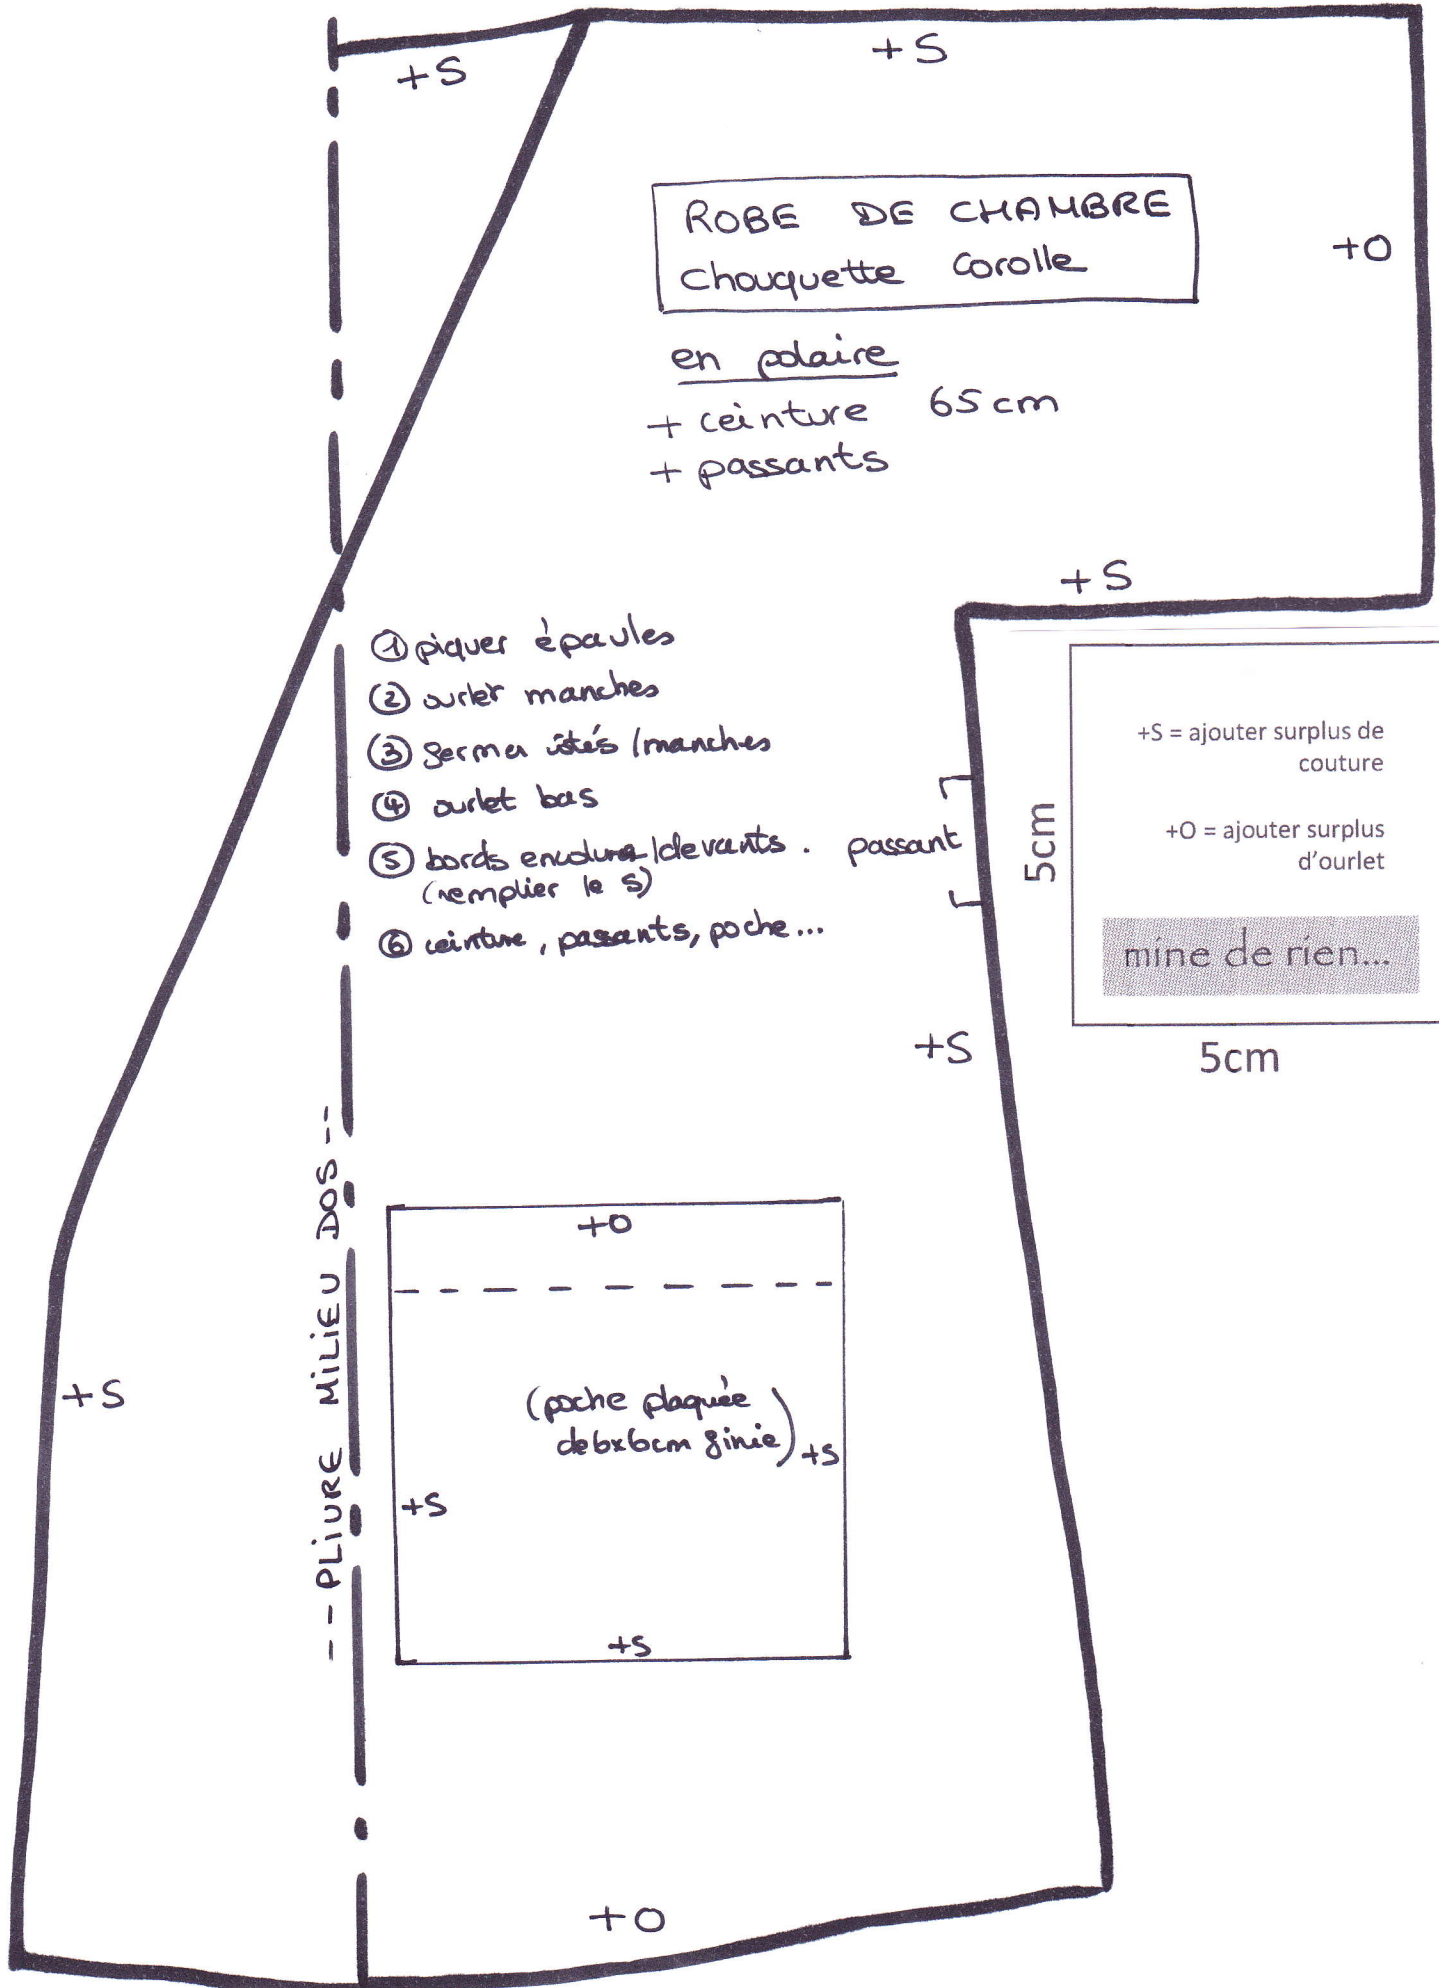 +S
+S
ROBE DE CHAMBRE
Chouquette Corolle
+O
en polaire
+ ceinture 65 cm
+ passants
+S
① piquer épaules
② ourler manches
③ fermer côtés / manches
④ ourlet bas
⑤ bords encolure / devants.
(remplier le S)
⑥ ceinture, passants, poche...
passant
+S = ajouter surplus de
couture
+O = ajouter surplus
d'ourlet
mine de rien...
5cm
5cm
+S
--PLIURE MILIEU DOS--
+O
(poche plaquée
de 6x6cm finie)
+S
+S
+S
+S
+O